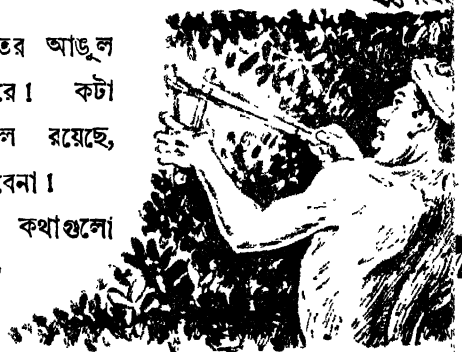 তর আঙুল
রে ! কটা
ল রয়েছে,
বেনা !
কথাগুলো